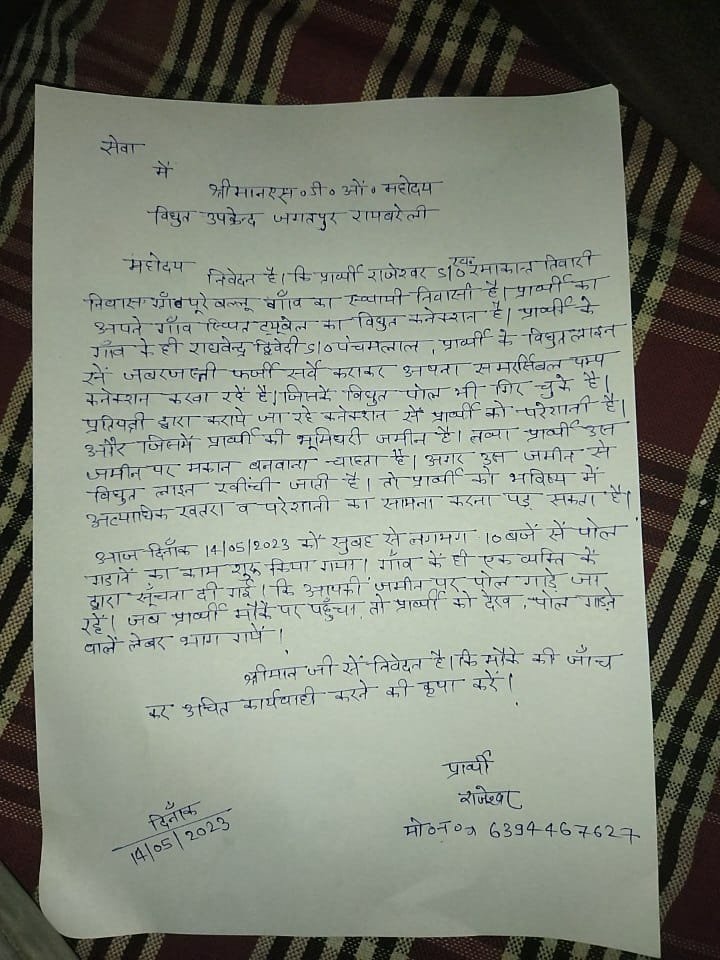 सेवा
में
श्रीमान एस॰ डी॰ ओ॰ महोदय
विधुत उपकेन्द्र जगतपुर रायबरेली
महोदय
निवेदन है। कि प्रार्थी राजेश्वर S/0 स्व॰ रमाकान्त तिवारी
निवास गाँव पूरे बल्लू गाँव का स्थायी निवासी है। प्रार्थी का
अपने गाँव स्थित ट्यूबेल का विधुत कनेक्शन है। प्रार्थी के
गाँव के ही राघवेन्द्र द्विवेदी S/0 पंचमलाल, प्रार्थी के विधुत लाइन
से जबरजस्ती फर्जी सर्वे कराकर अपना समरर्सिबल पम्प
कनेक्शन करवा रहें है। जिसके विधुत पोल भी गिर चुके है।
प्रतिपक्षी द्वारा कराये जा रहे कनेक्शन सें प्रार्थी को परेशानी है।
और जिसमें प्रार्थी की भूमिधरी जमीन है। तथा प्रार्थी उस
जमीन पर मकान बनवाना चाहता है। अगर उस जमीन से
विधुत लाइन खींची जाती है। तो प्रार्थी को भविष्य में
अत्याधिक खतरा व परेशानी का सामना करना पड़ सकता है।
आज दिनाँक 14/05/2023 कों सुबह से लगभग 10 बजें सें पोल
गडानें का काम शुरू किया गया। गाँव कें ही एक व्यक्ति कें
द्वारा सूँचना दी गई। कि आपकी जमीन पर पोल गाड़े जा
रहें। जब प्रार्थी मौके पर पहुँचा, तो प्रार्थी को देख, पोल गाड़ने
वालें लेबर भाग गयें।
श्रीमान जी सें निवेदन है। कि मौके की जाँच
कर उचित कार्यवाही करने की कृपा करें।
प्रार्थी
राजेश्वर
मो॰न॰ 6394467627
दिनाँक
14/05/2023